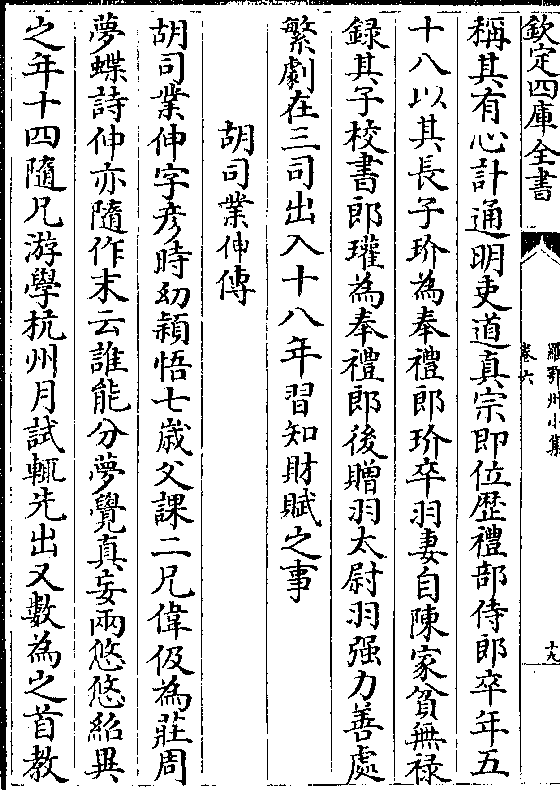 欽定四庫全書
羅鄂州小集
卷六
十九
稱其有心計通明吏道真宗即位歴禮部侍郎卒年五
十八以其長子玠為奉禮郎玠卒羽妻自陳家貧無禄
録其子校書郎瓘為奉禮郎後贈羽太尉羽强力善處
繁劇在三司出入十八年習知財賦之事
胡司業伸傳
胡司業伸字彦時幼穎悟七歳父課二兄偉伋為莊周
夢蝶詩伸亦隨作末云誰能分夢覺真妄兩悠悠紹異
之年十四隨兄游學杭州月試輒先出又數為之首教